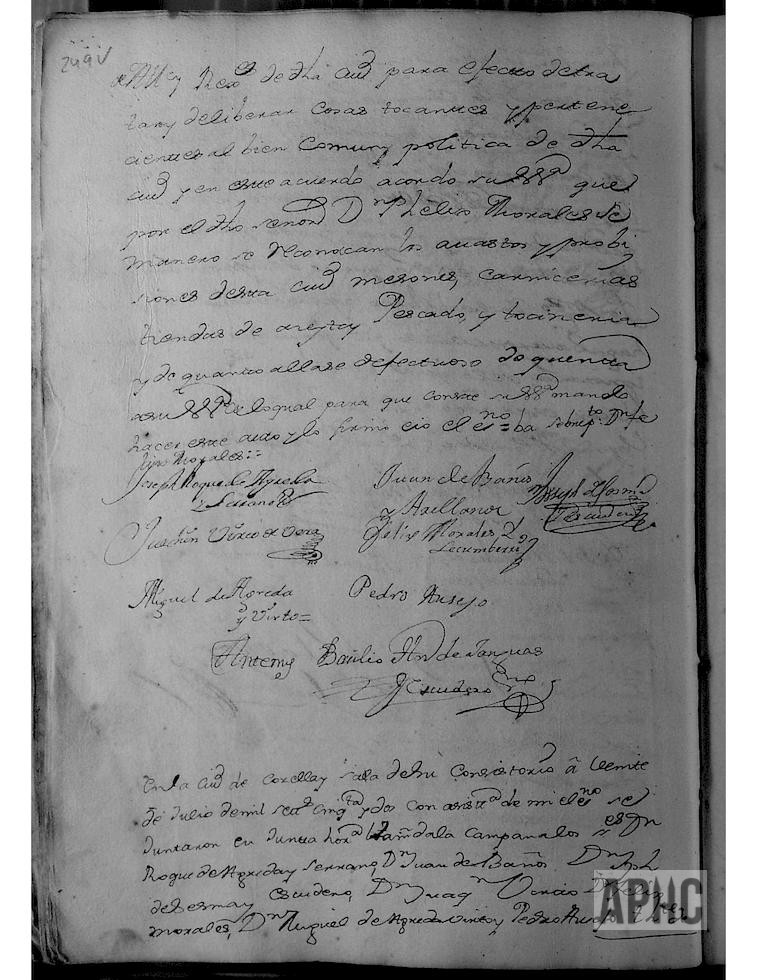 249V
de Alle y Rexo de dha ciud para efecto de tra
tar y deliberar cosas tocantes y pertene
cientes al bien Comun y politica de dha
ciud y en este acuerdo acordo su SSª que
por el dho señor Dn Phelix Morales se
manero se reconozcan los avastos y probi
siones desta ciud mesones, carnicerias
tiendas de azeyte y Pescado, y tocineria
y de quanto allase defectuoso de quenta
a su SSª de lo qual para que conste su SSª mando
hacer este auto y lo firmo e yo el esno = ba sobrepto: Dn fe
lipe Morales:-
Joseph Roque de Agreda
y Serrano
Juan de Baños
y Arellano
Joseph de Sesma
Escudero
Juachin Virto de Vera
Felix Morales
Lecumberri
Miguel de Agreda
y Virto=
Pedro Ausejo
Antemy Basilio de Tanguas
y Escudero
En la ciud de Corella y sala de su Consistorio â veinte
de Julio de mil setts cinqta y dos con asista de mi el esno se
Juntaron en Junta hora tañida la Campana los ss es Dn
Roque de Agreda y Serrano, Dn Juan de Baños Dn Jph
de Sesma y Escudero, Dn Juaqn Vircio Dn Felix
Morales, Dn Miguel de Agreda y Virto y Pedro Ausejo
APHC